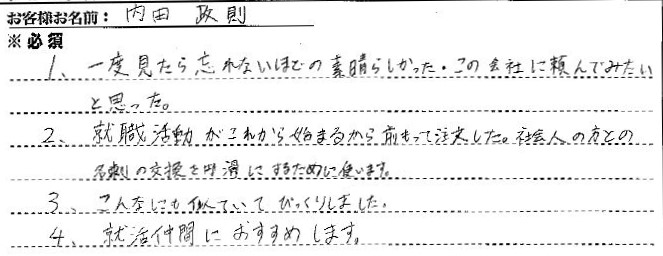 お客様お名前: 内田 政則
※必須
1、一度見たら忘れないほどの素晴らしかった・この会社に頼んでみたい
と思った。
2、就職活動がこれから始まるから前もって注文した。社会人の方との
名刺の交換を円滑にするために使います。
3、こんなにも似ていてびっくりしました。
4、就活仲間におすすめします。